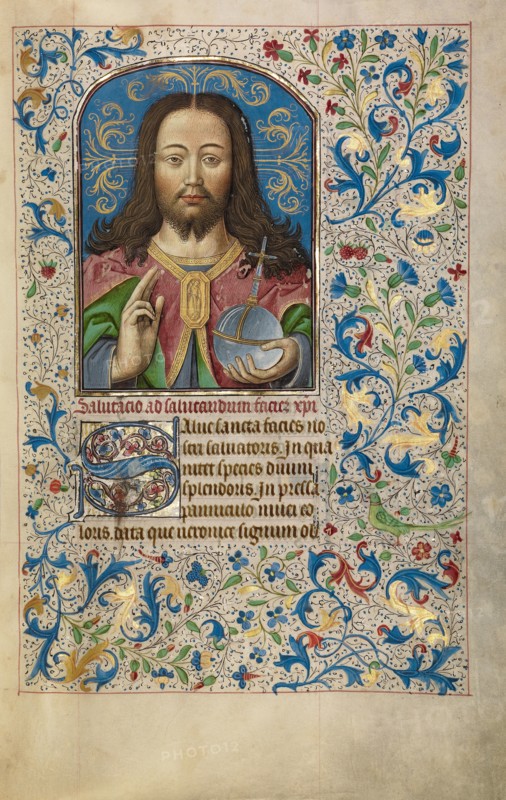 Salutacio ad salutandum faciez xpi
Salue sancta facies no
stri saluatoris. In qua
nitet species diuini
splendoris. In pressa
panniculo niuei co
loris. data que ueronice signum ob
PHOTO12